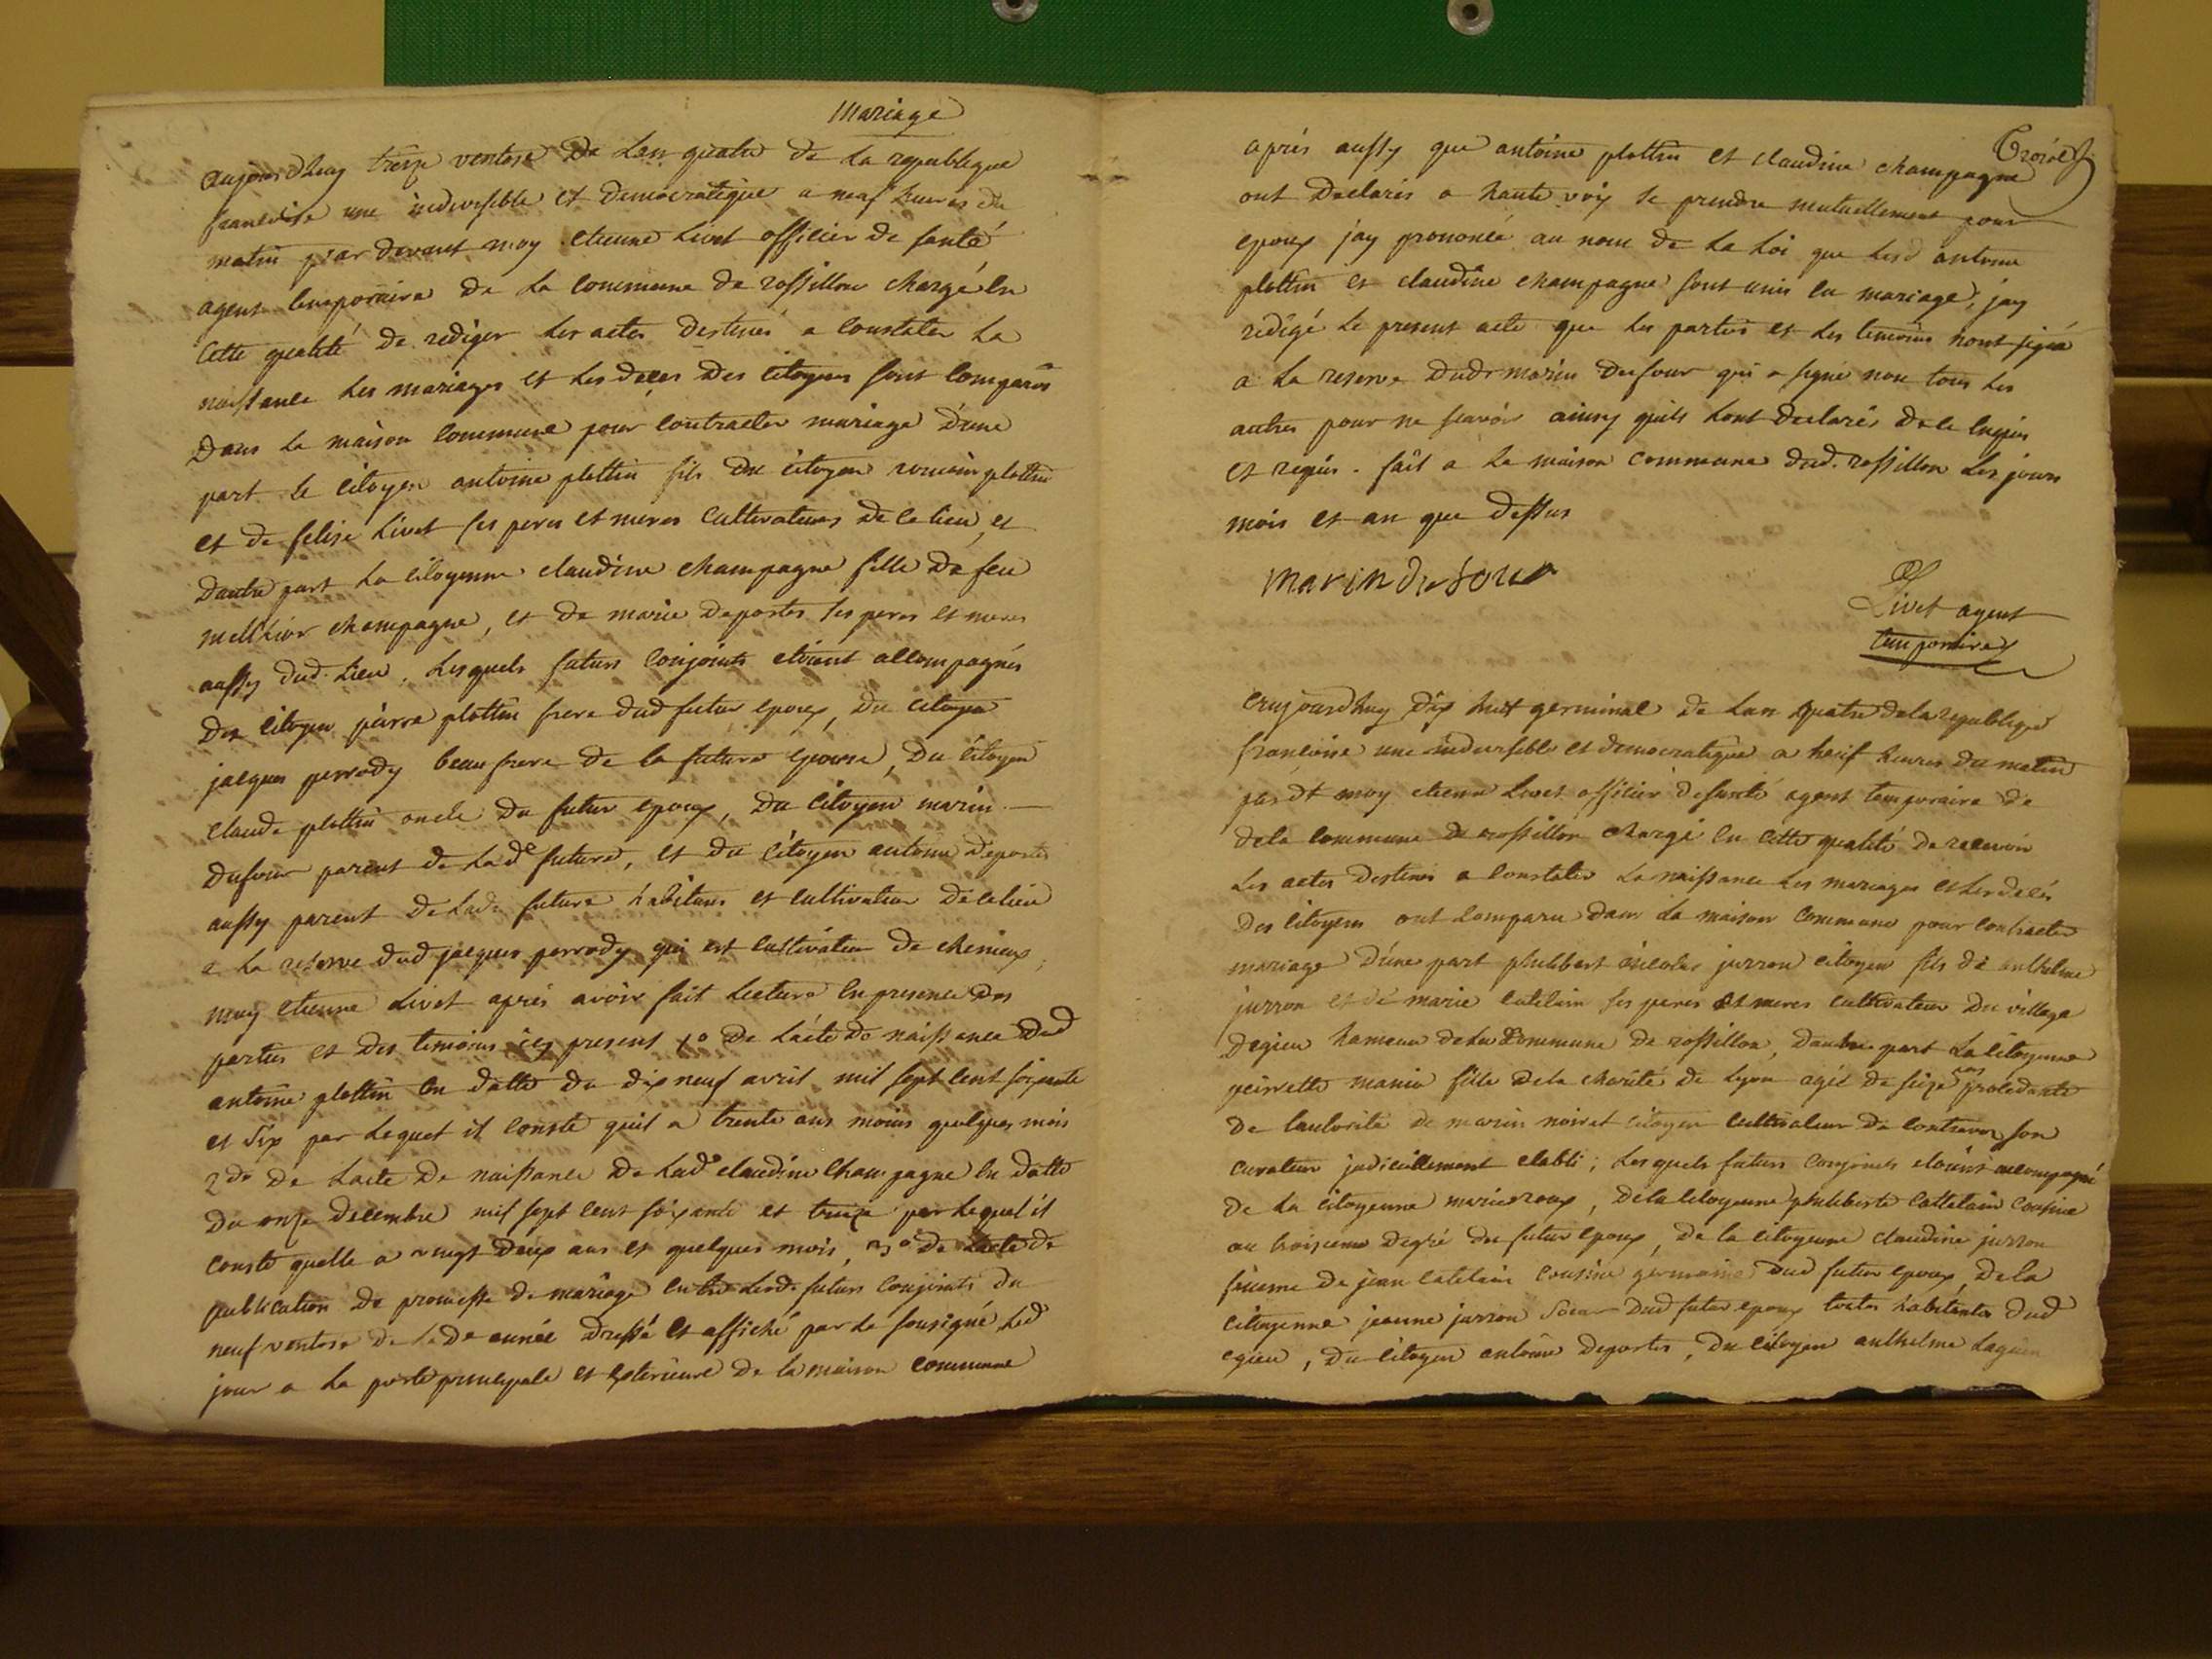 Mariage
aujourdhuy treize ventose De Lan quatre de La republique
francoise une indivisible et democratique a neuf heures du
matin par devant moy etienne Livet officier de santé
agent temporaire De La commune de rossillon chargé En
Cette qualité De rediger Les actes Destinés a Constater La
naissance Les mariages et Les deces Des Citoyens sont Comparus
Dans La maison Commune pour Contracter mariage D'une
part le Citoyen antoine plottin fils Du Citoyen romain plottin
et De felise Livet ses peres et meres Cultivateurs De Ce lieu, et
Dautre part La Citoyenne claudine champagne fille De feu
melchior champagne, et De marie Deportes ses peres et meres
aussy dud. Lieu, Lesquels futurs Conjoints etoient accompagnés
Du Citoyen pierre plottin frere Dud futur epoux, Du Citoyen
jacques perrody beau frere De la future epouse, Du Citoyen
claude plottin oncle Du futur epoux, Du Citoyen marin
Dufour parent de Lade future, et Du Citoyen antoine Deportes
aussy parent De Lade future habitans et Cultivateurs De Ce lieu
a La reserve Dud jacques perrody qui est Cultivateur de
moy etienne Livet après avoir fait Lecture En presence Des
parties et Des temoins icy present 1o De L'acte De naissance Dud
antoine plottin En datte Du dix neuf avril mil sept Cent soixante
et Six par Lequel il Conste quil a trente ans moins quelques mois
2do De Lacte De naissance De Lade claudine Champagne En datte
Du onze Decembre mil sept Cent soixante et treize par Lequel il
Conste quelle a vingt Deux ans et quelques mois, 3o De Lacte De
publication De promesse De mariage Entre Lesd. futurs Conjoints Du
neuf ventose De Lade année Dressé et affiché par Le sousigné Led
jour a La porte principale et Exterieure De la maison Commune
Troise
après aussy que antoine plottin et claudine champagne
ont Declarés a haute voix se prendre mutuellement pour
epoux jay prononcé au nom De La Loi que Lesd antoine
plottin et claudine champagne sont unis En mariage, jay
redigé Le present acte que Les parties et Les temoins nont signé
a La reserve Dudt marin Dufour qui a signé non tous Les
autres pour ne scavoir ainsy quils Lont Declarés De Ce Enquis
et requis. fait a La maison Commune dud. rossillon Les jours
mois et an que Dessus
marin dufour
Livet agent
temporaire
aujourdhuy Dix huit germinal De Lan quatre dela republique
francoise une indivisible et democratique a neuf heures du matin
par dt moy etienne Livet officier de santé agent temporaire De
dela commune De rossillon Chargé En Cette qualité De recevoir
Les actes Destinés a Constater La naissance Les mariages et Les decés
Des Citoyens ont Comparu Dans La maison Commune pour Contracter
mariage D'une part philibert nicolas jurron Citoyen fils De anthelme
jurron et De marie Catelain ses peres et meres Cultivateur Du village
Degieu hameau De La Commune De rossillon, Dautre part La Citoyenne
peirrette mania fille Dela charité De Lyon agée De seize ans procedante
De lautorité De marin noiret Citoyen Cultivateur De Contrevoz son
Curateur judiciellement etabli; Lesquels futurs Conjoints etoient accompagné
De La Citoyenne marie roux, De la Citoyenne philiberte Cattelain Cousine
au troisieme Degré Du futur epoux, De la Citoyenne Claudine jurron
femme De jean Catelain Cousine germaine Dud futur epoux, De la
Citoyenne jeanne jurron Soeur Dud futur epoux toutes habitantes Dud
egieu, Du Citoyen antoine Deportes, Du Citoyen anthelme